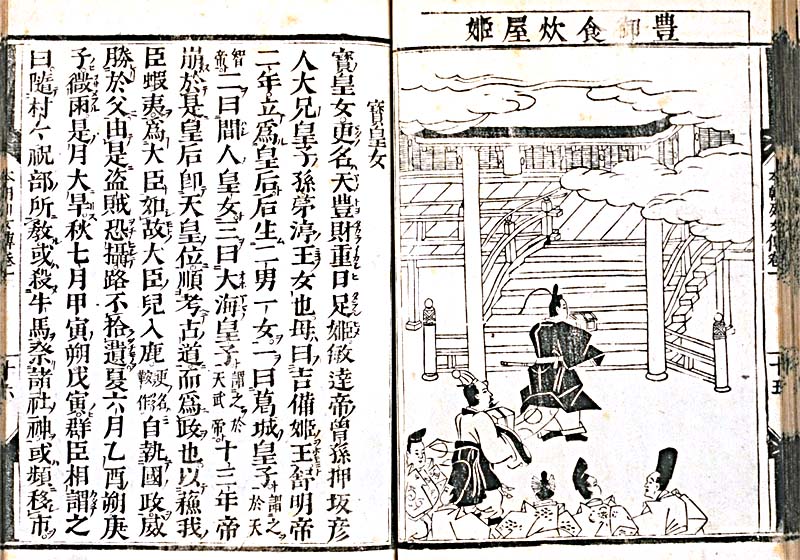 豐御食炊屋姬
本朝列女傳卷一
十五
寶皇女
寶皇女更名天豐財重日足姬敏達帝曾孫押坂彥
人大兄皇子孫茅渟王女也母曰吉備姬王舒明帝
二年立爲皇后后生二男一女一曰葛城皇子謂之於天
智帝二曰間人皇女三曰大海皇子謂之於天武帝十三年帝
崩於是皇后卽天皇位順考古道而爲政也以蘓我
臣蝦夷爲大臣如故大臣兒入鹿更名鞍作自執國政威
勝於父由是盜賊恐攝路不拾遺夏六月乙酉朔庚
子微雨是月大旱秋七月甲寅朔戊寅群臣相謂之
曰隨村々祝部所敎或殺牛馬祭諸社神或頻移市
本朝列女傳卷一
十六